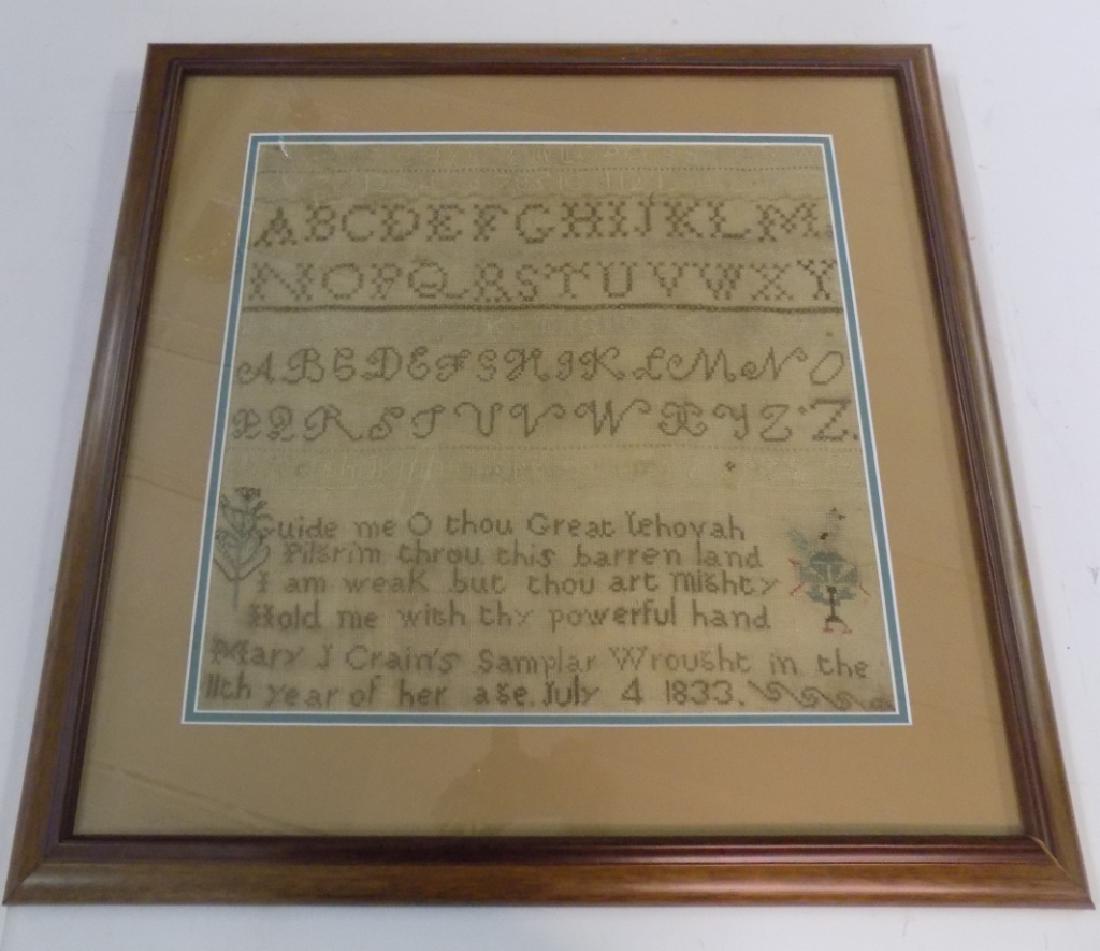 A B C D E F G H I J K L M
N O P Q R S T U V W X Y
A B C D E F G H I K L M N O
P Q R S T U V W X Y Z Z.
Guide me O thou Great Iehovah
Pilgrim throu this barren land
I am weak but thou art mighty
Hold me with thy powerful hand
Mary J Crain's Samplar Wrought in the
11th year of her age. July 4 1833.